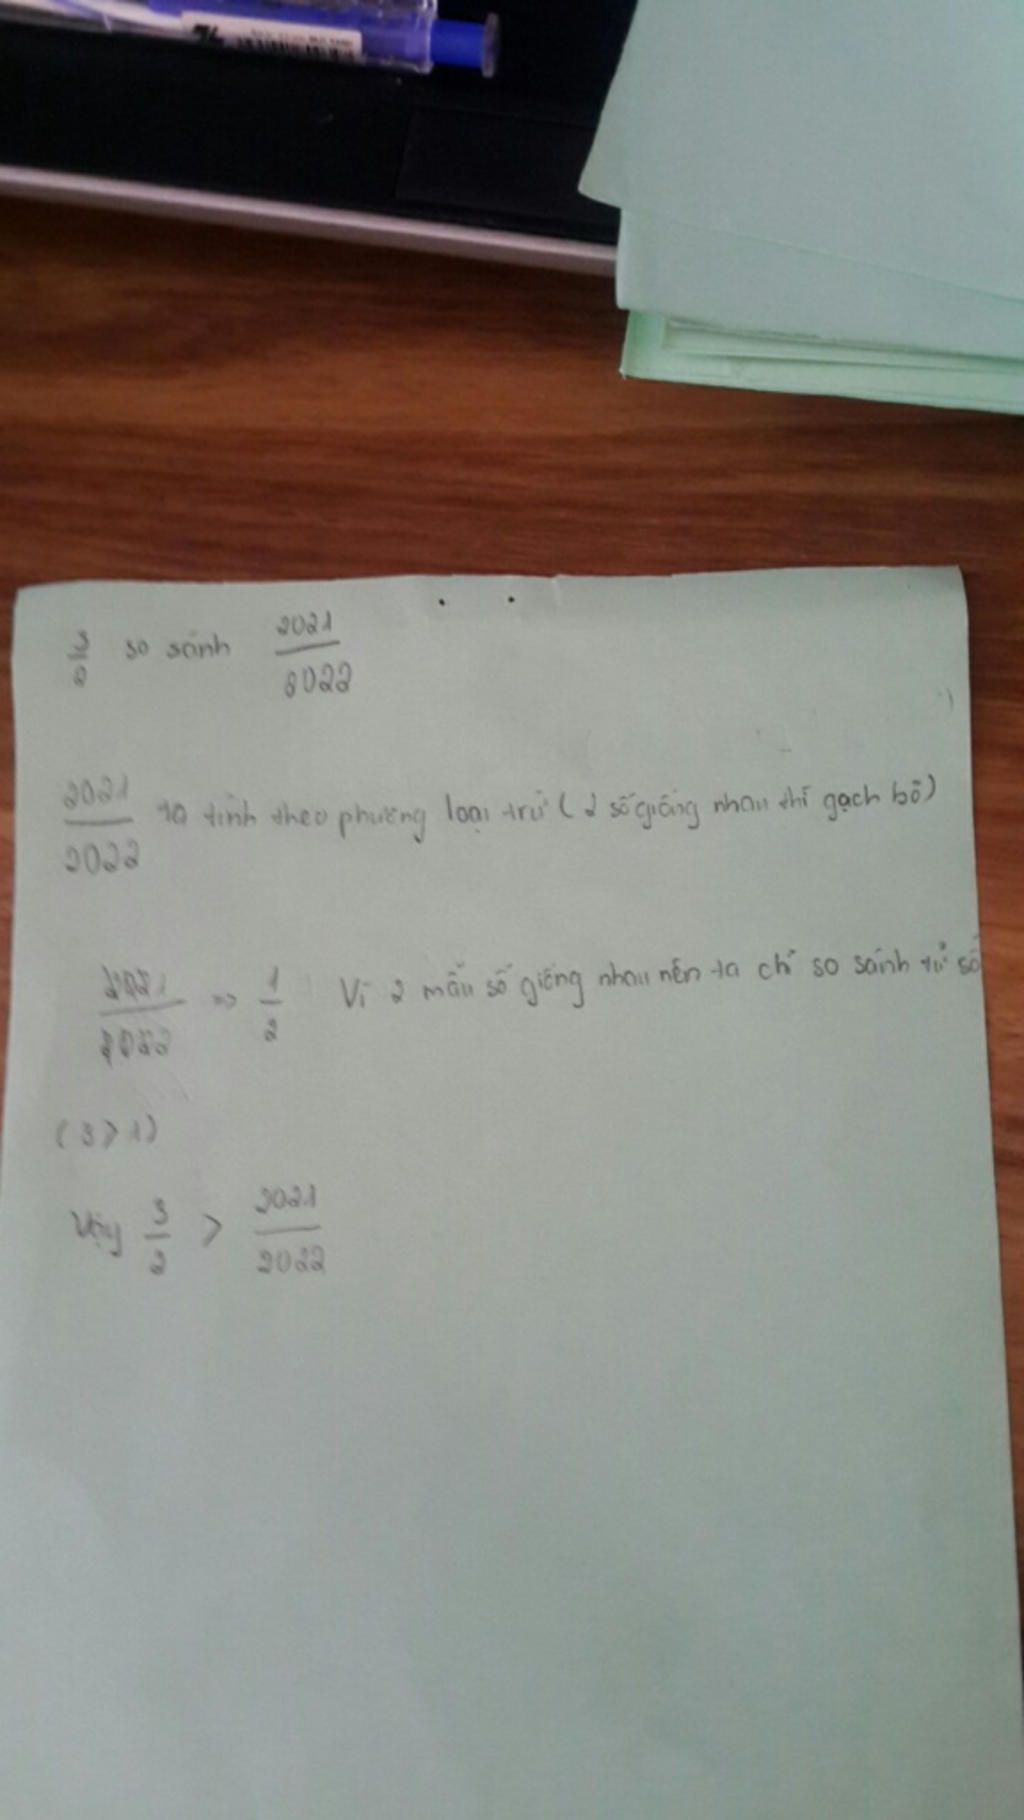 3/2 so sánh 2021/2022
2021/2022 ta tính theo phương loại trừ (2 số giống nhau thì gạch bỏ)
2021/2022 => 1/2 Vì 2 mẫu số giống nhau nên ta chỉ so sánh tử số
(3 > 1)
Vậy 3/2 > 2021/2022